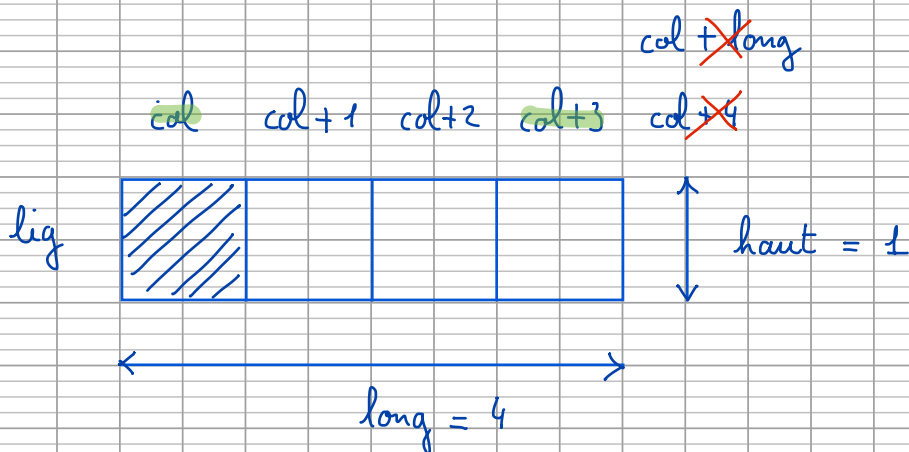 col + long
col col+1 col+2 col+3 col+4
lig
haut = 1
long = 4